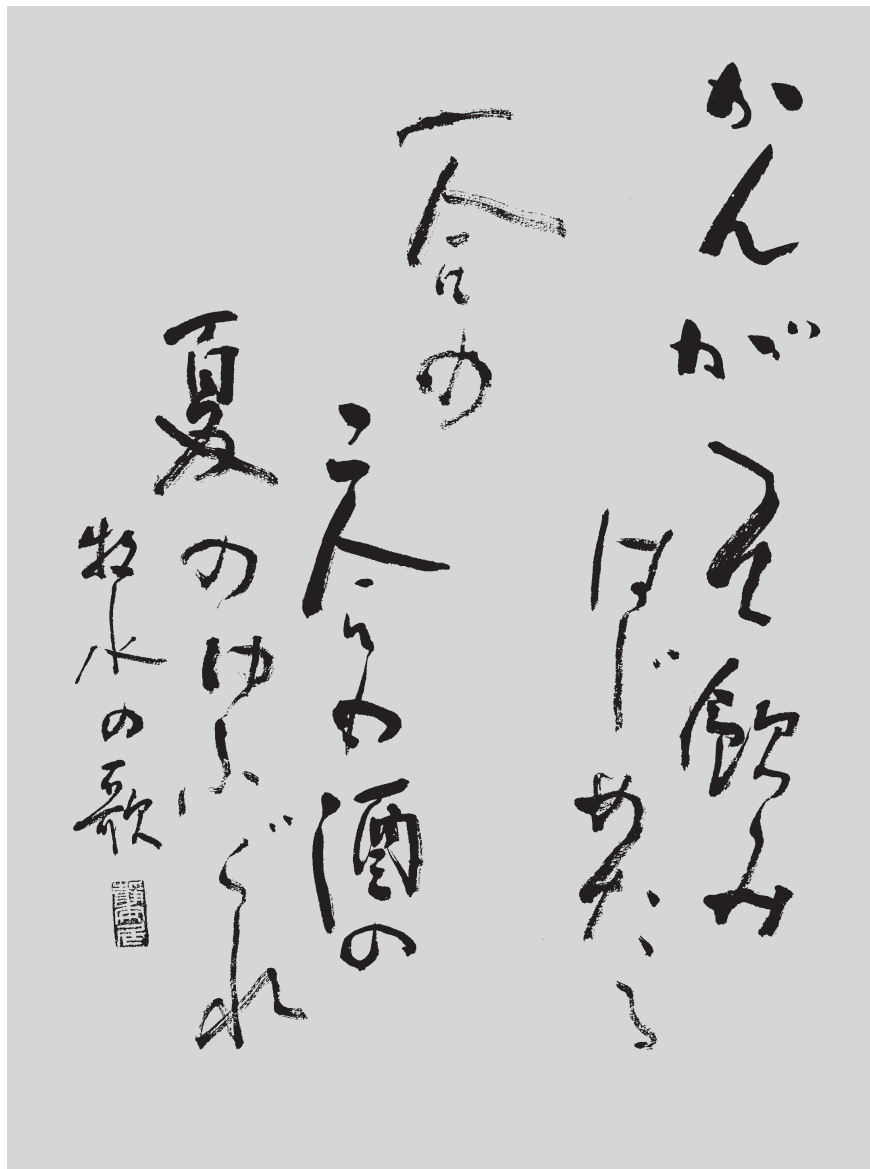 かんがへて飲み
はじめたる
一合の
二合の酒の
夏のゆふぐれ
牧水の歌